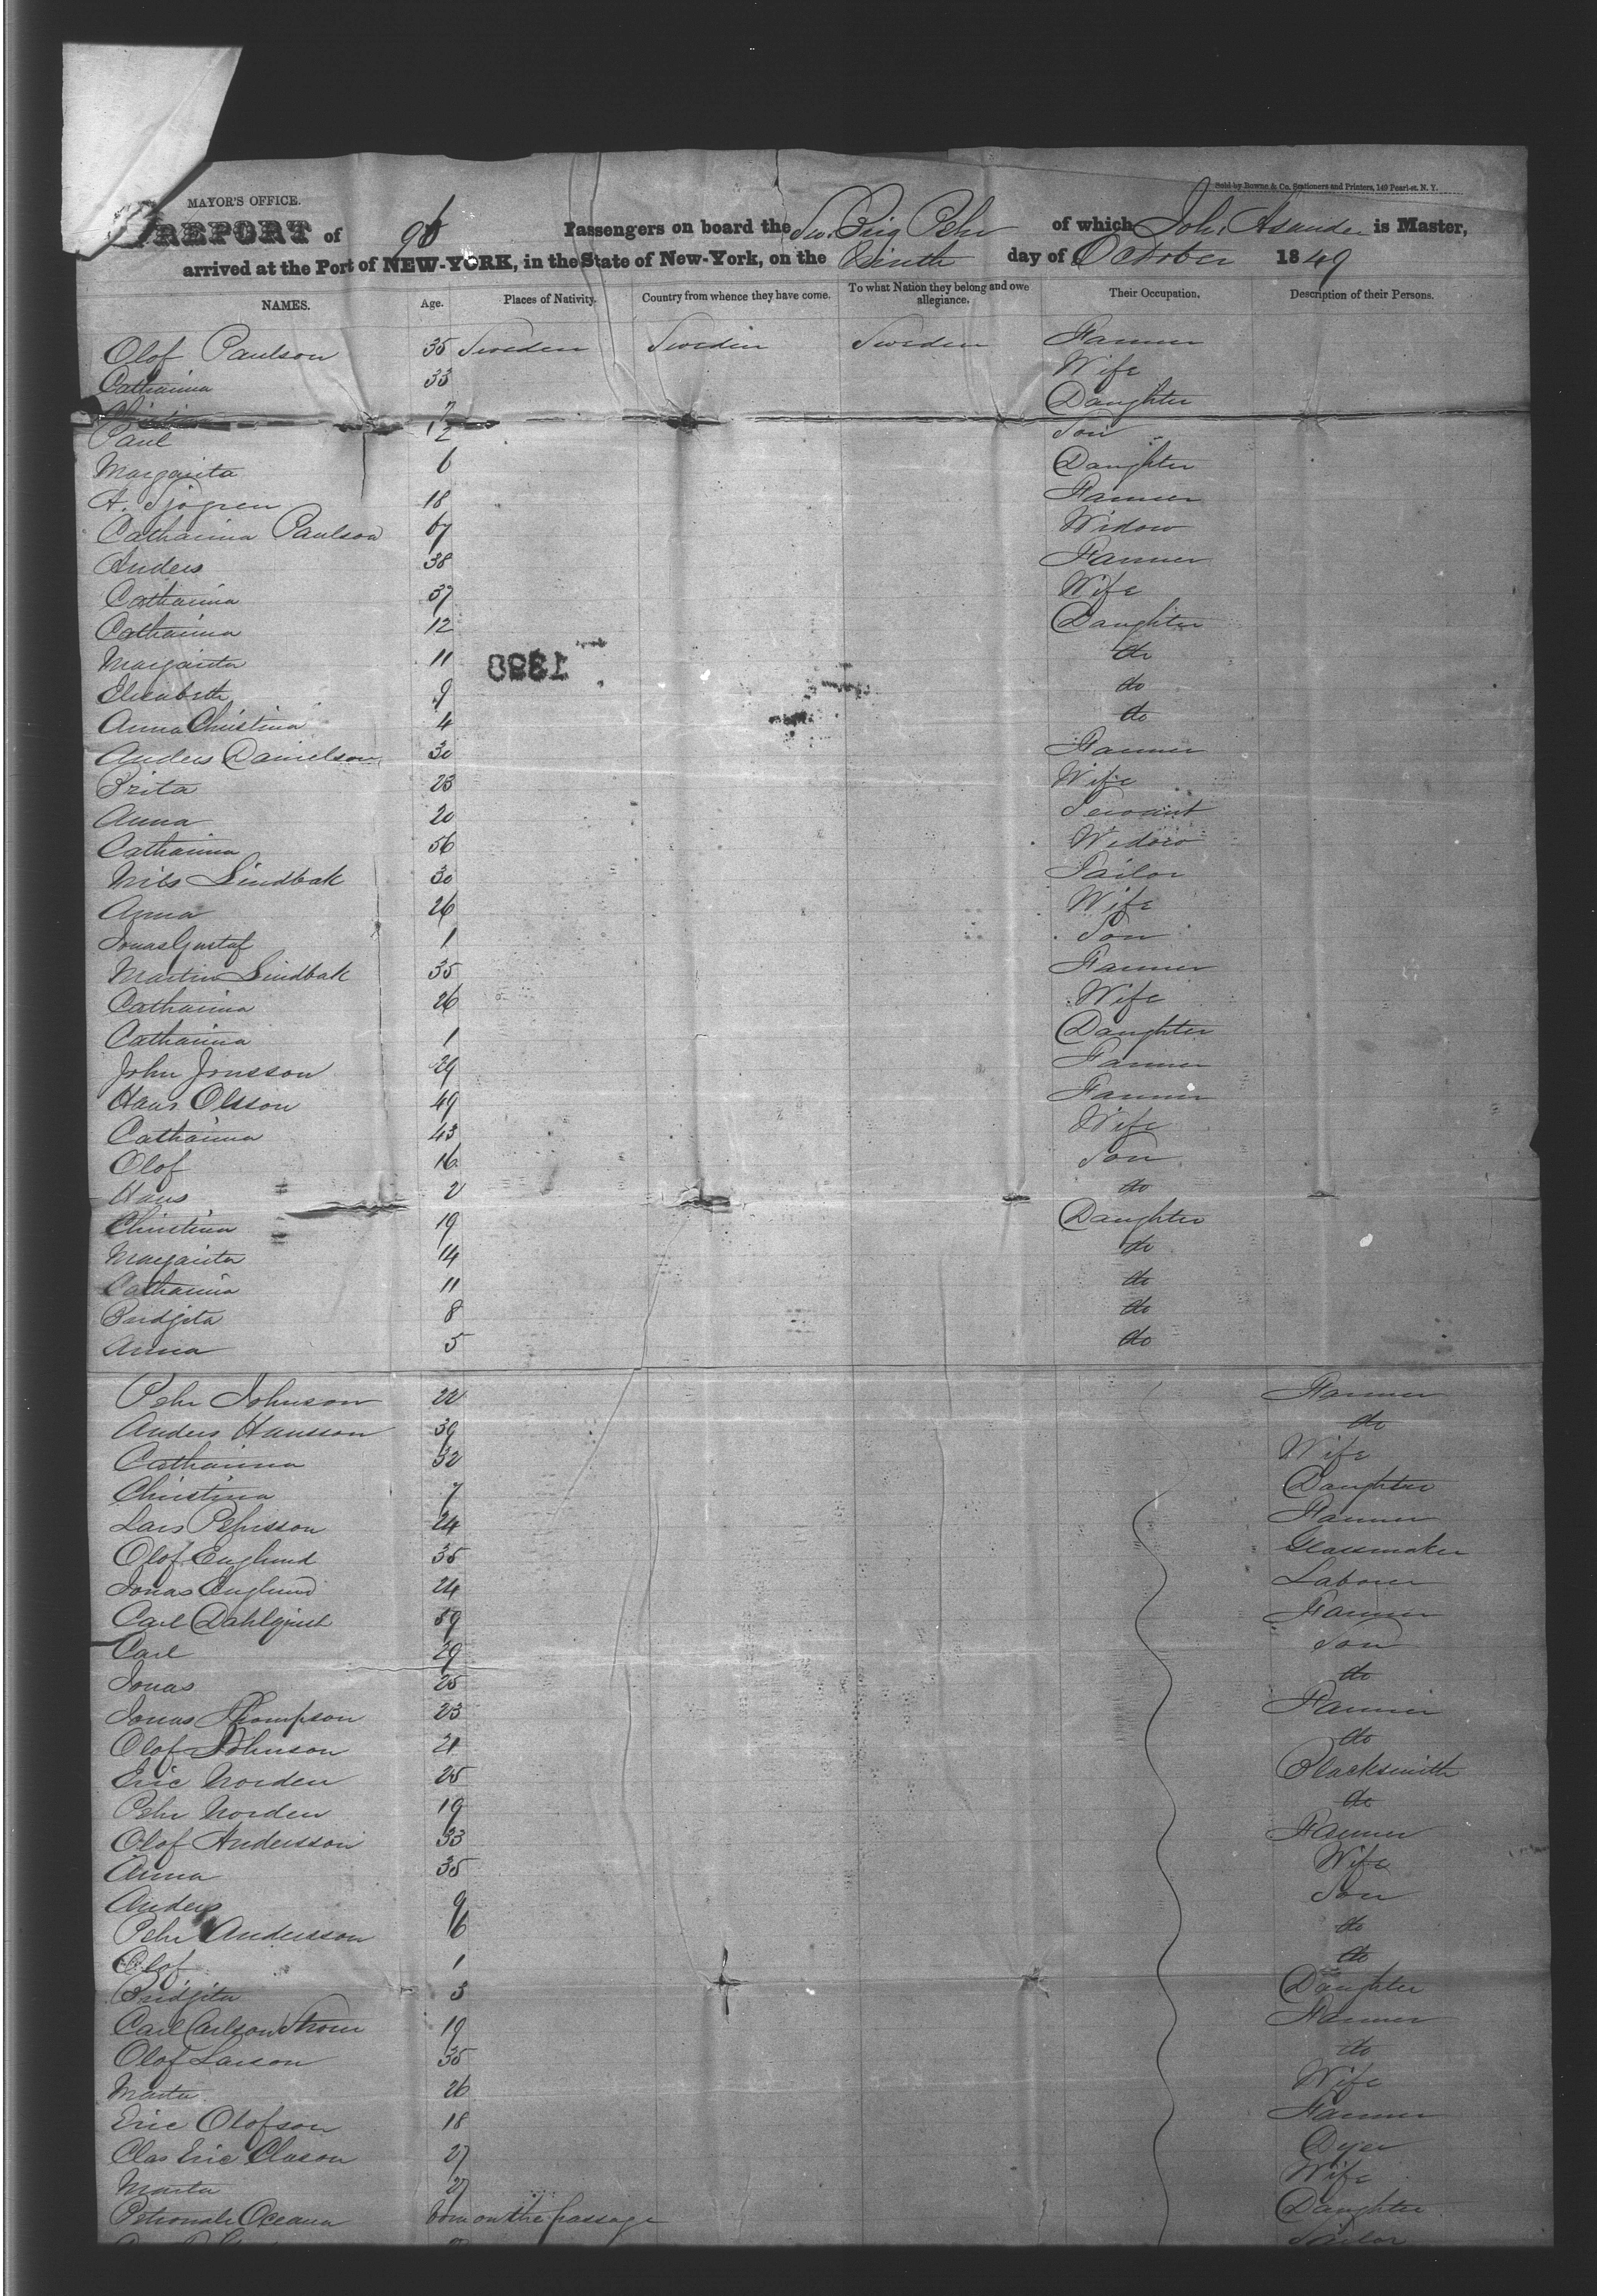 Sold by Bowne & Co. Stationers and Printers, 149 Pearl-st. N. Y.
MAYOR'S OFFICE.
REPORT of 96 Passengers on board the Sw. Brig Pehr of which Joh. Asander is Master,
arrived at the Port of NEW-YORK, in the State of New-York, on the Ninth day of October 1849
NAMES. Age. Places of Nativity. Country from whence they have come. To what Nation they belong and owe allegiance. Their Occupation. Description of their Persons.
Olof Paulson 35 Sweden Sweden Sweden Farmer
Catharina 33 Wife
Christina 7 Daughter
Paul 1/2 Son
Margarita 6 Daughter
A. Sjogren 18 Farmer
Catharina Paulson 67 Widow
Anders 38 Farmer
Catharina 37 Wife
Catharina 12 Daughter
Margarita 11 do
1380
Elisabeth 9 do
Anna Christina 4 do
Anders Danielson 30 Farmer
Brita 23 Wife
Anna 20 Servant
Catharina 56 Widow
Nils Lindbak 30 Tailor
Anna 26 Wife
Jonas Gustaf 1 Son
Martin Lindbak 35 Farmer
Catharina 26 Wife
Catharina 1 Daughter
John Jonsson 29 Farmer
Hans Olsson 49 Farmer
Catharina 43 Wife
Olof 16 Son
Hans 2 do
Christina 19 Daughter
Margarita 14 do
Catharina 11 do
Bridgita 8 do
Anna 5 do
Pehr Johnson 22 Farmer
Anders Hansson 39 do
Catharina 32 Wife
Christina 7 Daughter
Lars Pehrsson 24 Farmer
Olof Englund 35 Glassmaker
Jonas Englund 24 Laborer
Carl Dahlquist 59 Farmer
Carl 29 Son
Jonas 25 do
Jonas Thompson 23 Farmer
Olof Johnson 21 do
Eric Norden 25 Blacksmith
Pehr Norden 19 do
Olof Andersson 33 Farmer
Anna 35 Wife
Anders 9 Son
Pehr Andersson 6 do
Olof 1 do
Bridgita 3 Daughter
Carl Carlson Strom 19 Farmer
Olof Larson 35 do
Marta 26 Wife
Eric Olofson 18 Farmer
Clas Eric Clason 27 Dyer
Marta 27 Wife
Petronale Oceana born on the passage Daughter
Tailor